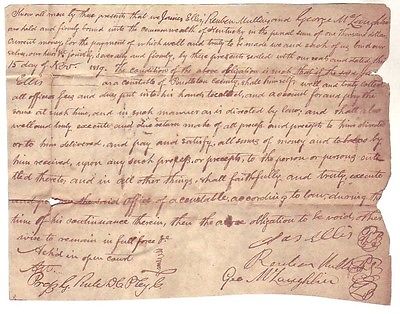 Know all men by these presents that we James Ellis, Reuben Mullins and George McLaughlin
are held and firmly bound unto the commonwealth of Kentucky in the penal sum of one thousand dollars
current money, for the payment of which well and truly to be made we and each of us bind our
selves, our heirs &c jointly, severally and firmly, by these presents sealed with our seals and dated this
15 day of Nov. 1819. The condition of the above obligation is such that if the above Jas
Ellis constable of Pendleton County, shall himself, well and truly collect
all officers fees and dues put into his hands to collect, and account for and pay the
same at such time, and in such manner as is directed by law, and shall also
well and truly execute and due return make of all process and precepts to him directed
or to him delivered, and pay and satisfy, all sums of money and tobacco by
him received, upon any such process, or precepts, to the person or persons entitled
thereto, and in all other things, shall faithfully, and truly, execute
the said office of a constable, according to law, during the
time of his continuance therein, then the above obligation to be void, other
wise to remain in full force &c
Ack'd in open court
Jas Ellis
Reuben Mullins
Geo McLaughlin